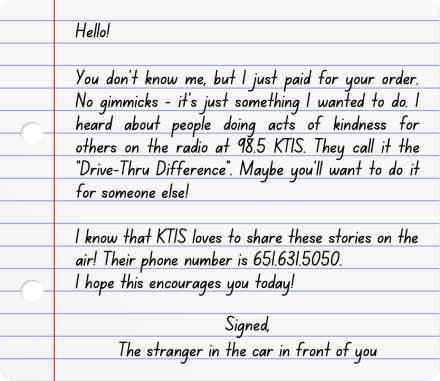 Hello!
You don't know me, but I just paid for your order.
No gimmicks - it's just something I wanted to do. I
heard about people doing acts of kindness for
others on the radio at 98.5 KTIS. They call it the
"Drive-Thru Difference". Maybe you'll want to do it
for someone else!
I know that KTIS loves to share these stories on the
air! Their phone number is 651.631.5050.
I hope this encourages you today!
Signed,
The stranger in the car in front of you